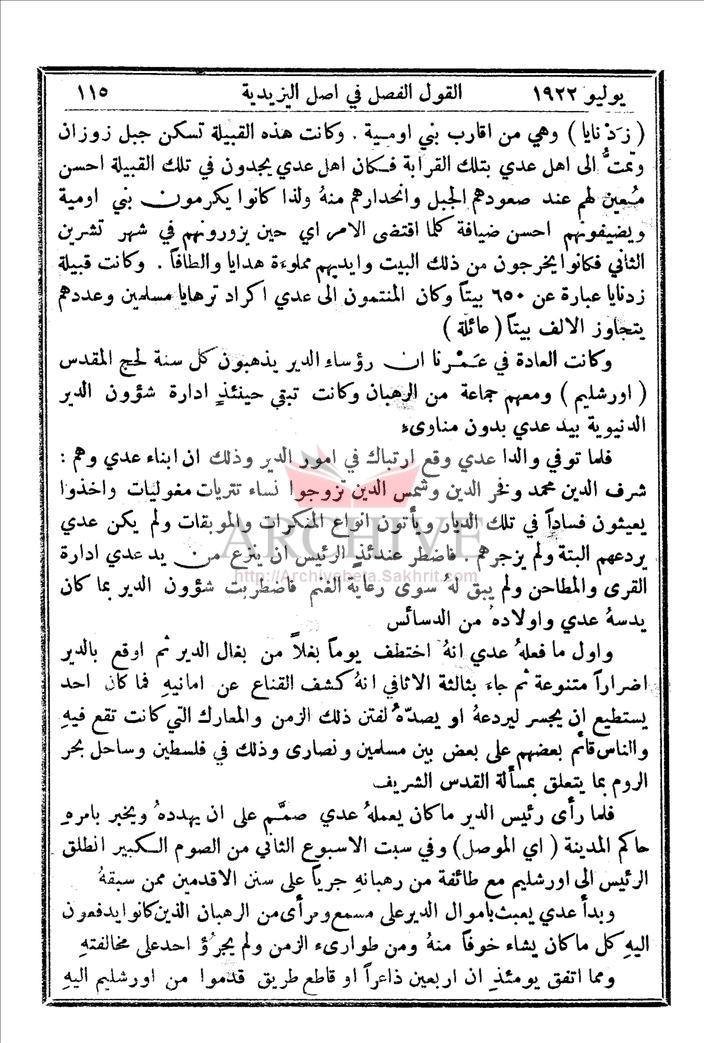 يوليو ١٩٢٢ القول الفصل في اصل اليزيدية ١١٥
( زَدْ نايا ) وهي من اقارب بني اومية . وكانت هذه القبيلة تسكن جبل زوزان
وتمتُّ الى اهل عدي بتلك القرابة فكان اهل عدي يجدون في تلك القبيلة احسن
مُعين لهم عند صعودهم الجبل وانحدارهم منهُ ولذا كانوا يكرمون بني اومية
ويضيفونهم احسن ضيافة كلما اقتضى الامر اي حين يزورونهم في شهر تشرين
الثاني فكانوا يخرجون من ذلك البيت وايديهم مملوءة هدايا والطافاً . وكانت قبيلة
زدنايا عبارة عن ٦٥٠ بيتاً وكان المنتمون الى عدي اكراد ترهايا مسلمين وعددهم
يتجاوز الالف بيتاً ( عائلة )
وكانت العادة في عَـمْـرنا ان رؤساء الدير يذهبون كل سنة لحج المقدس
( اورشليم ) ومعهم جماعة من الرهبان وكانت تبقي حينئذٍ ادارة شؤون الدير
الدنيوية بيد عدي بدون مناوىء
فلما توفي والدا عدي وقع ارتباك في امور الدير وذلك ان ابناء عدي وهم :
شرف الدين محمد وفخر الدين وشمس الدين تزوجوا نساء تتريات مغوليات واخذوا
يعيثون فساداً في تلك الديار ويأتون انواع المنكرات والموبقات ولم يكن عدي
يردعهم البتة ولم يزجرهم . فاضطر عندئذٍ الرئيس ان ينزع من يد عدي ادارة
القرى والمطاحن ولم يبق لهُ سوى رعاية الغنم فاضطربت شؤون الدير بما كان
يدسهُ عدي واولادهُ من الدسائس
واول ما فعلهُ عدي انهُ اختطف يوماً بغلاً من بغال الدير ثم اوقع بالدير
اضراراً متنوعة ثم جاء بثالثة الاثافي انهُ كشف القناع عن امانيهِ فما كان احد
يستطيع ان يجسر ليردعهُ او يصدّهُ لفتن ذلك الزمن والمعارك التي كانت تقع فيهِ
والناس قائم بعضهم على بعض بين مسلمين ونصارى وذلك في فلسطين وساحل بحر
الروم بما يتعلق بمسألة القدس الشريف
فلما رأى رئيس الدير ما كان يعملهُ عدي صمَّم على ان يهددهُ ويخبر بامرهِ
حاكم المدينة ( اي الموصل ) وفي سبت الاسبوع الثاني من الصوم الكبير انطلق
الرئيس الى اورشليم مع طائفة من رهبانهِ جرياً على سنن الاقدمين ممن سبقهُ
وبدأ عدي يعبث باموال الدير على مسمع ومرأى من الرهبان الذين كانوا يدفعون
اليهِ كل ما كان يشاء خوفاً منهُ ومن طوارىء الزمن ولم يجرؤ احد على مخالفتهِ
ومما اتفق يومئذٍ ان اربعين ذاعراً او قاطع طريق قدموا من اورشليم اليهِ
ARCHIVE
http://Archivebeta.Sakhrit.com